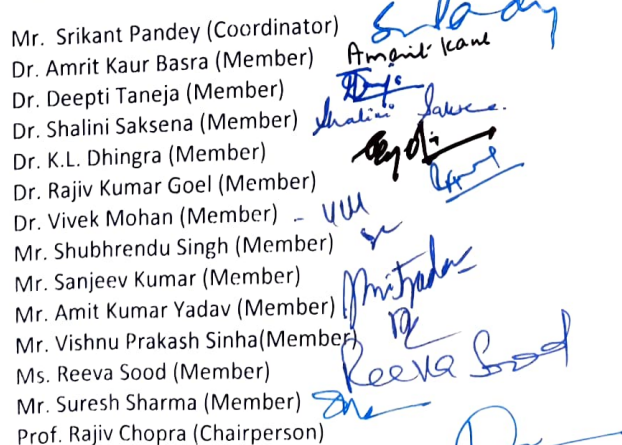 Mr. Srikant Pandey (Coordinator)
Dr. Amrit Kaur Basra (Member) Amrit Kaur
Dr. Deepti Taneja (Member)
Dr. Shalini Saksena (Member) Shalini Saksena.
Dr. K.L. Dhingra (Member)
Dr. Rajiv Kumar Goel (Member)
Dr. Vivek Mohan (Member) - VM
Mr. Shubhrendu Singh (Member)
Mr. Sanjeev Kumar (Member)
Mr. Amit Kumar Yadav (Member) Amityadav
Mr. Vishnu Prakash Sinha(Member)
Ms. Reeva Sood (Member) Reeva Sood
Mr. Suresh Sharma (Member)
Prof. Rajiv Chopra (Chairperson)